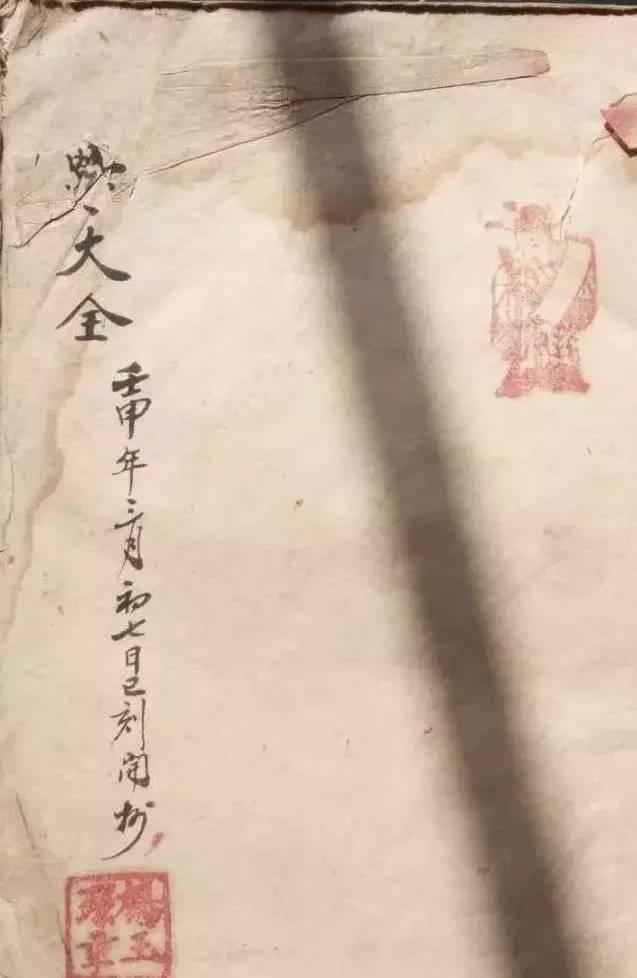 大全
壬申年三月初七日巳刻開抄